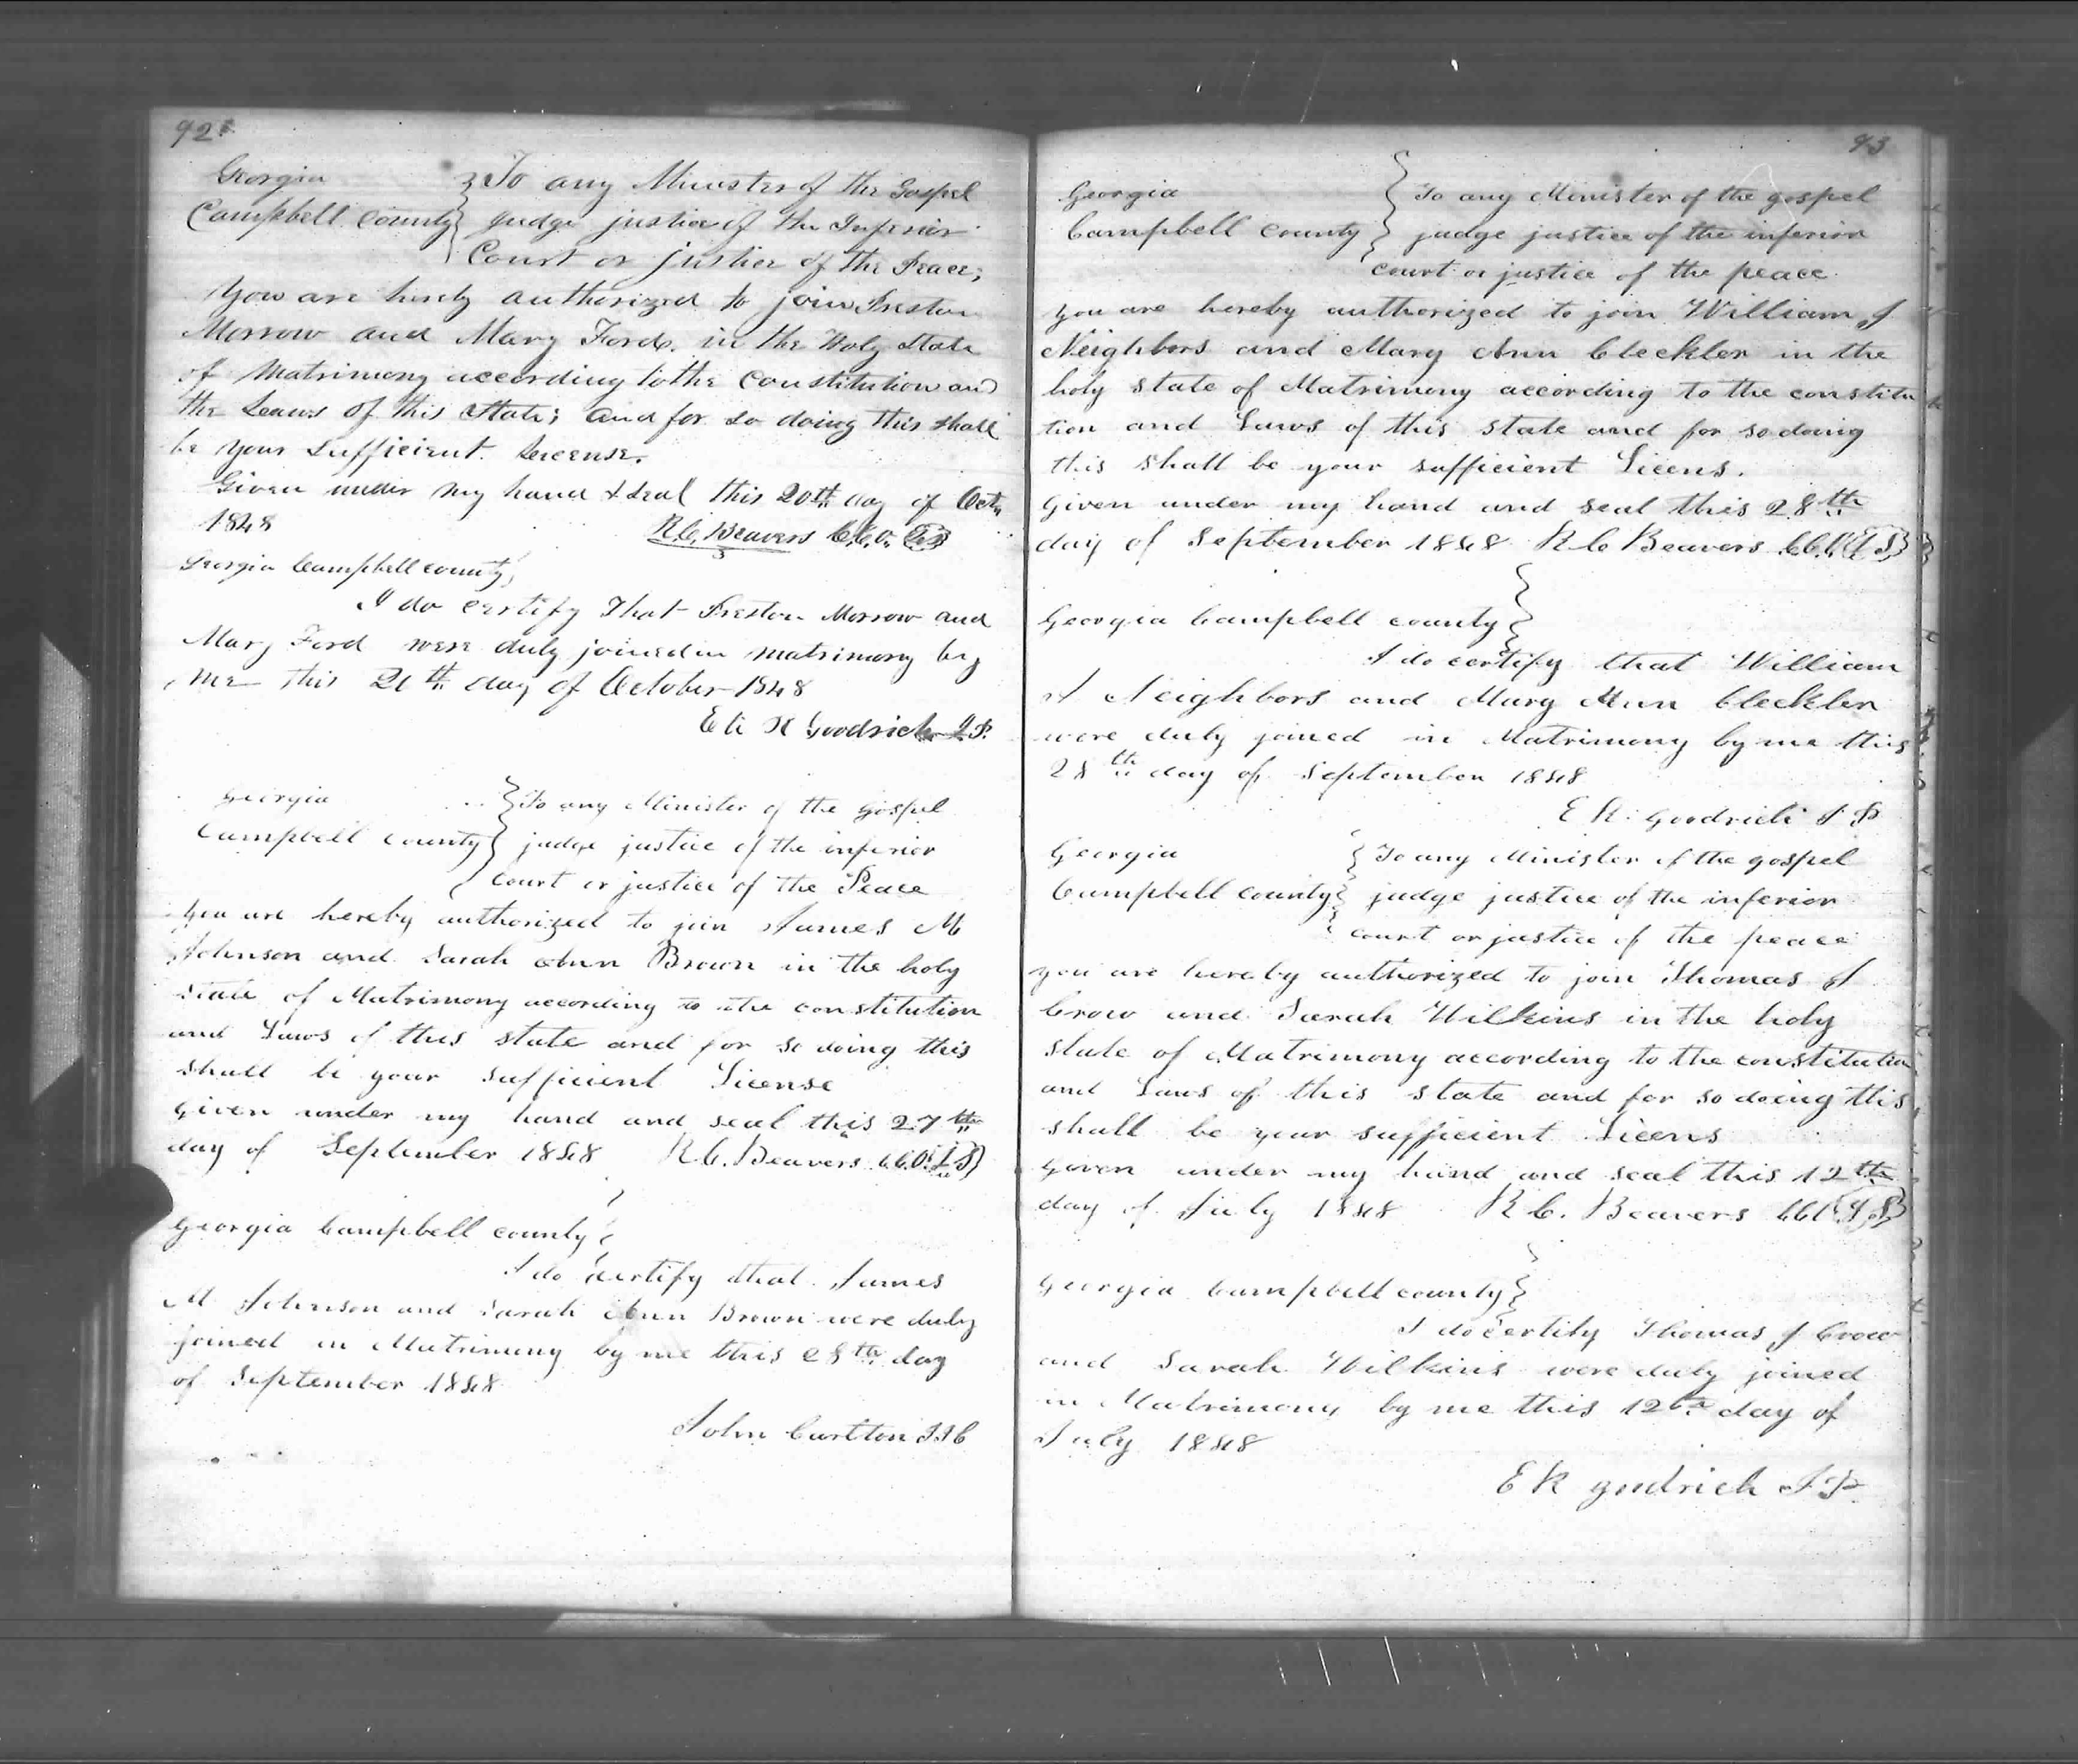 92
Georgia } To any Minister of the Gospel
Campbell County } judge justice of the Inferior
Court or justice of the Peace;
You are hereby authorized to join Preston
Morrow and Mary Ford, in the Holy State
of Matrimony according to the Constitution and
the Laws of this State; and for so doing this shall
be your sufficient License.
Given under my hand & seal this 20th day of Octr
1848 R.C. Beavers C.C.O.
Georgia Campbell county,
I do certify That Preston Morrow and
Mary Ford were duly joined in matrimony by
me this 20th day of October 1848
Eli K Goodrich J.P.
Georgia } To any Minister of the Gospel
Campbell County } judge justice of the inferior
court or justice of the Peace
You are hereby authorized to join James M
Johnson and Sarah Ann Brown in the holy
state of Matrimony according to the constitution
and Laws of this state and for so doing this
shall be your sufficient License
given under my hand and seal this 27th
day of September 1848 R.C. Beavers C.C.O. (L.S)
Georgia Campbell county }
I do certify that James
M Johnson and Sarah Ann Brown were duly
joined in Matrimony by me this 28th day
of September 1848
John Carlton J I C
93
Georgia } To any Minister of the gospel
Campbell County } judge justice of the inferior
court or justice of the peace
you are hereby authorized to join William J
Neighbors and Mary Ann Cleckler in the
holy state of Matrimony according to the constitu
tion and Laws of this state and for so doing
this shall be your sufficient Licens.
Given under my hand and seal this 28th
day of September 1848 R C Beavers C.C.O (L S)
Georgia Campbell county }
I do certify that William
J Neighbors and Mary Ann Cleckler
were duly joined in Matrimony by me this
28th day of September 1848
E K. Goodrich J P
Georgia } To any Minister of the gospel
Campbell County } judge justice of the inferior
court or justice of the peace
you are hereby authorized to join Thomas J
Crow and Sarah Wilkins in the holy
state of Matrimony according to the constitution
and Laws of this state and for so doing this
shall be your sufficient Licens
given under my hand and seal this 12th
day of July 1848 R C. Beavers CCO (L S)
Georgia Campbell county }
I do certify Thomas J Crow
and Sarah Wilkins were duly joined
in Matrimony by me this 12th day of
July 1848
E K godrich J.P.